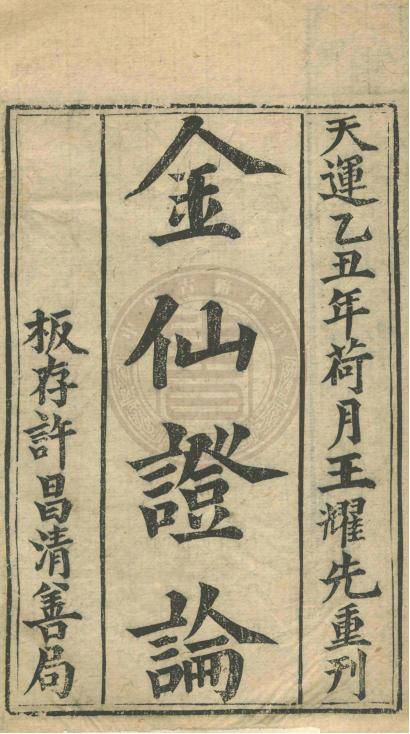 天運乙丑年荷月王耀先重刊
金仙證論
板存許昌清善局